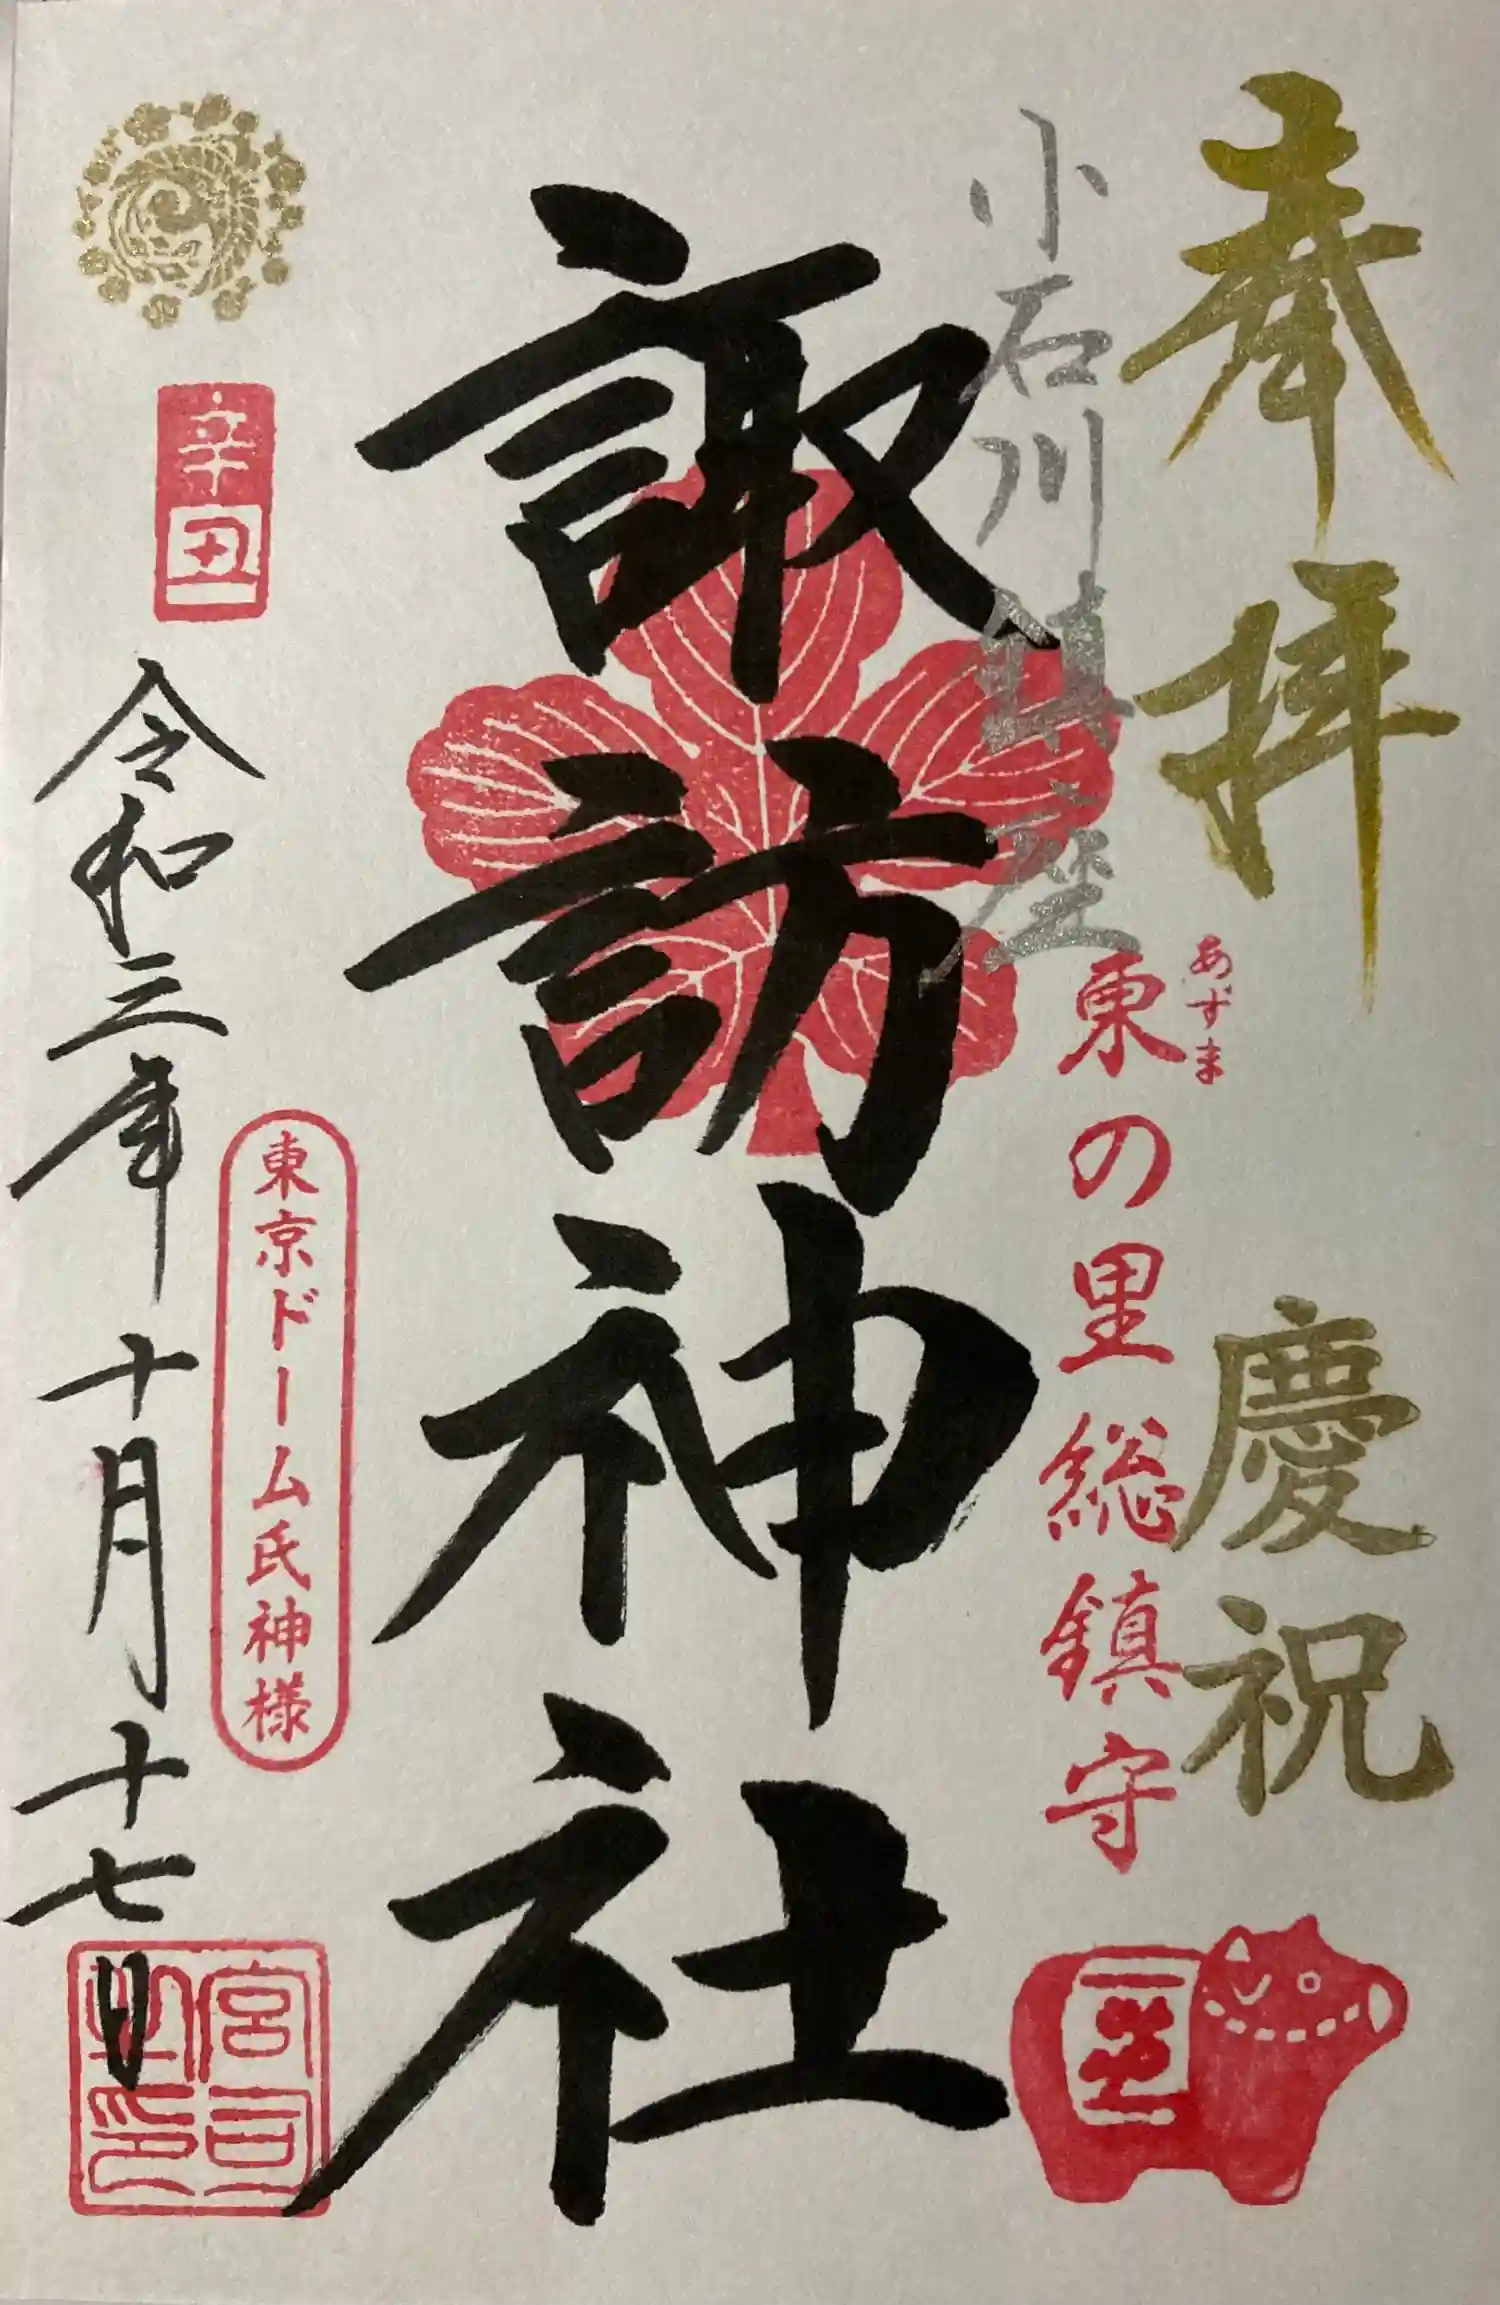 奉拝
慶祝
小石川鎮座
あずま
東の里総鎮守
諏訪神社
東京ドーム氏神様
辛丑
令和三年十月十七日
宮司之印